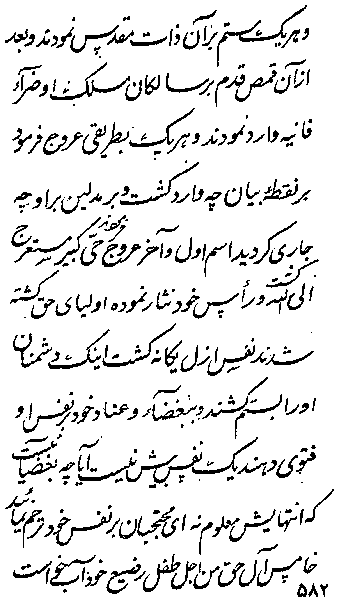 و هریک ستم برآن ذات مقدس نمودند و بعد
از آن قمص قدم بر سالکان مسلک او ضرّآء
فانیه وارد نمودند و هریک بطریقی عروج فرمود
بر نقطهٔ بیان چه وارد گشت و بر مدلین براو چه
جاری گردید اسم اول و آخر عروج نموده حیّ کبیر مستعرج
الی الله گشت و رأس خود نثار نموده اولیای حق کشته
شدند نفس ازل یگانه گشت اینک دشمنان
او را بستم کشند و ببغضآء و عناد خود بر نفس او
فتوی دهند یک نفس بیش نیست آیا چه بغضیآست
که انتهایش معلوم نه ای محتجبان بر نفس خود ترحم نمائید
خامس آل حق من اجل طفل رضیع خود آب میخواست
۵۸۲